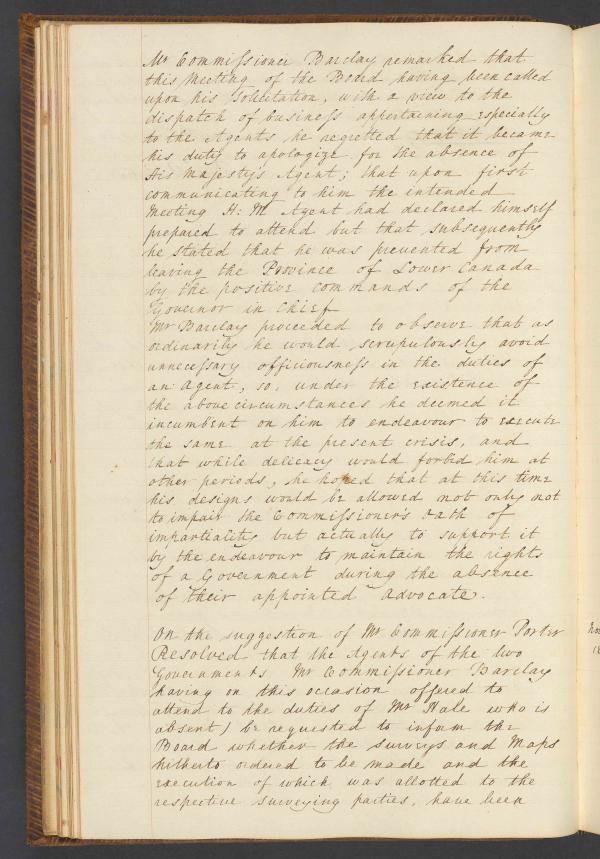 Mr Commissioner Barclay remarked that
this Meeting of the Board having been called
upon his solicitation, with a view to the
dispatch of business appertaining especially
to the Agents he regretted that it became
his duty to apologize for the absence of
His Majestys Agent; that upon first
communicating to him the intended
Meeting H: M Agent had declared himself
prepared to attend but that subsequently
he stated that he was prevented from
leaving the Province of Lower Canada
by the positive commands of the
Governor in Chief
Mr Barclay proceeded to observe that as
ordinarily he would scrupulously avoid
unnecessary officiousness in the duties of
an Agent, so, under the existence of
the above circumstances he deemed it
incumbent on him to endeavour to execute
the same at the present crisis, and
that while delicacy would forbid him at
other periods, he hoped that at this time
his designs would be allowed not only not
to impair the Commissioners oath of
impartiality but actually to support it
by the endeavour to maintain the rights
of a Government during the absence
of their appointed advocate.
On the suggestion of Mr Commissioner Porter
Resolved that the Agents of the two
Governments Mr Commissioner Barclay
having on this occasion offered to
attend to the duties of Mr Hale who is
absent) be requested to inform the
Board whether the surveys and Maps
hitherto ordered to be made and the
execution of which was allotted to the
respective surveying parties, have been